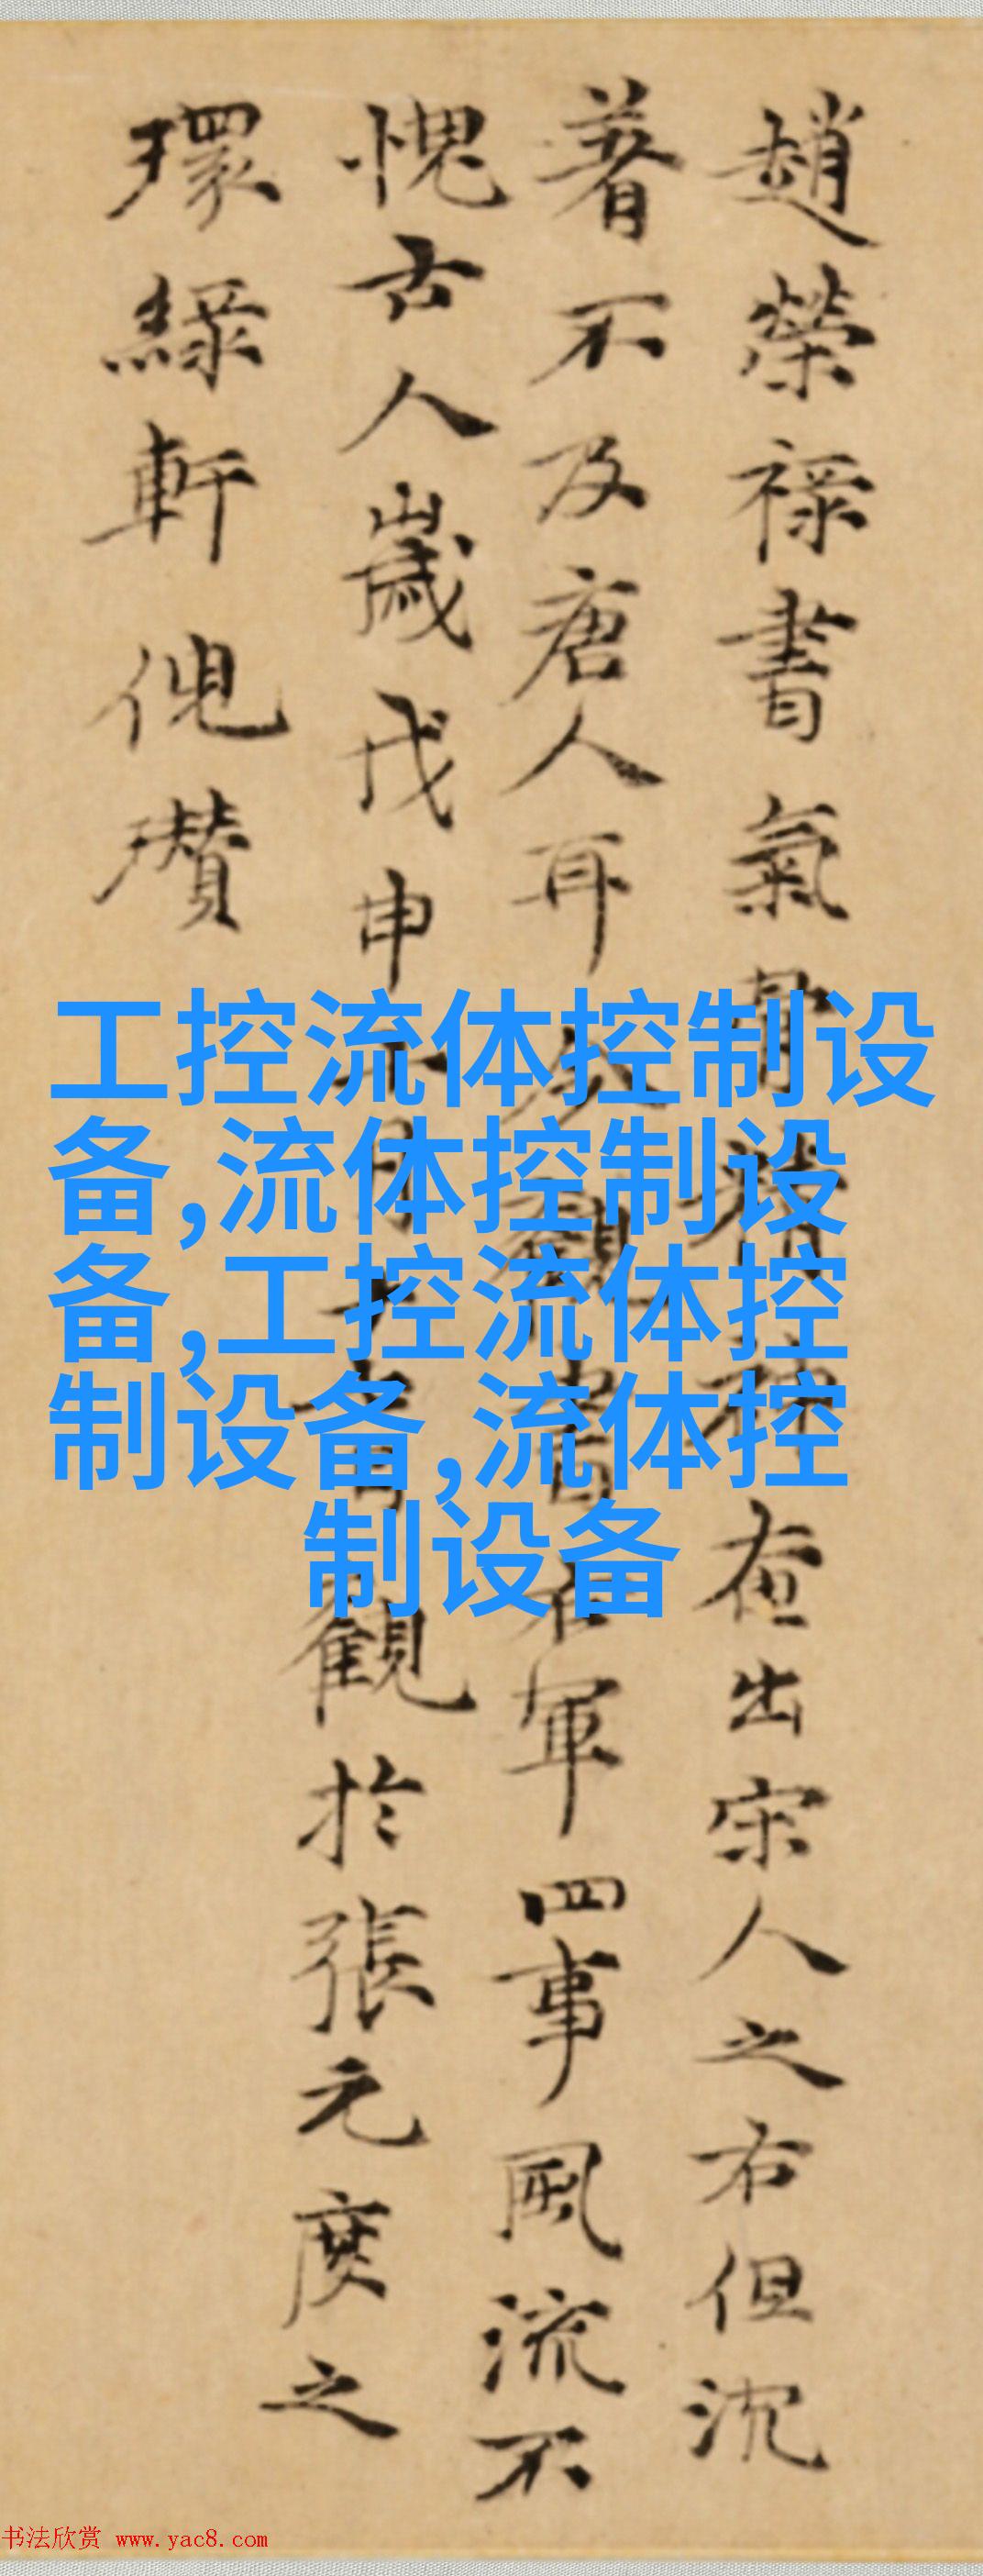 趙榮祿書氣骨出宋人之右但沉
著不及唐人耳書右軍四事風流不
愧古人歲戊申觀於張元度之
環綠軒倪瓚
工控流体控制设
备,流体控制设
备,工控流体控
制设备,流体控
制设备
书法欣赏 www.yac8.com